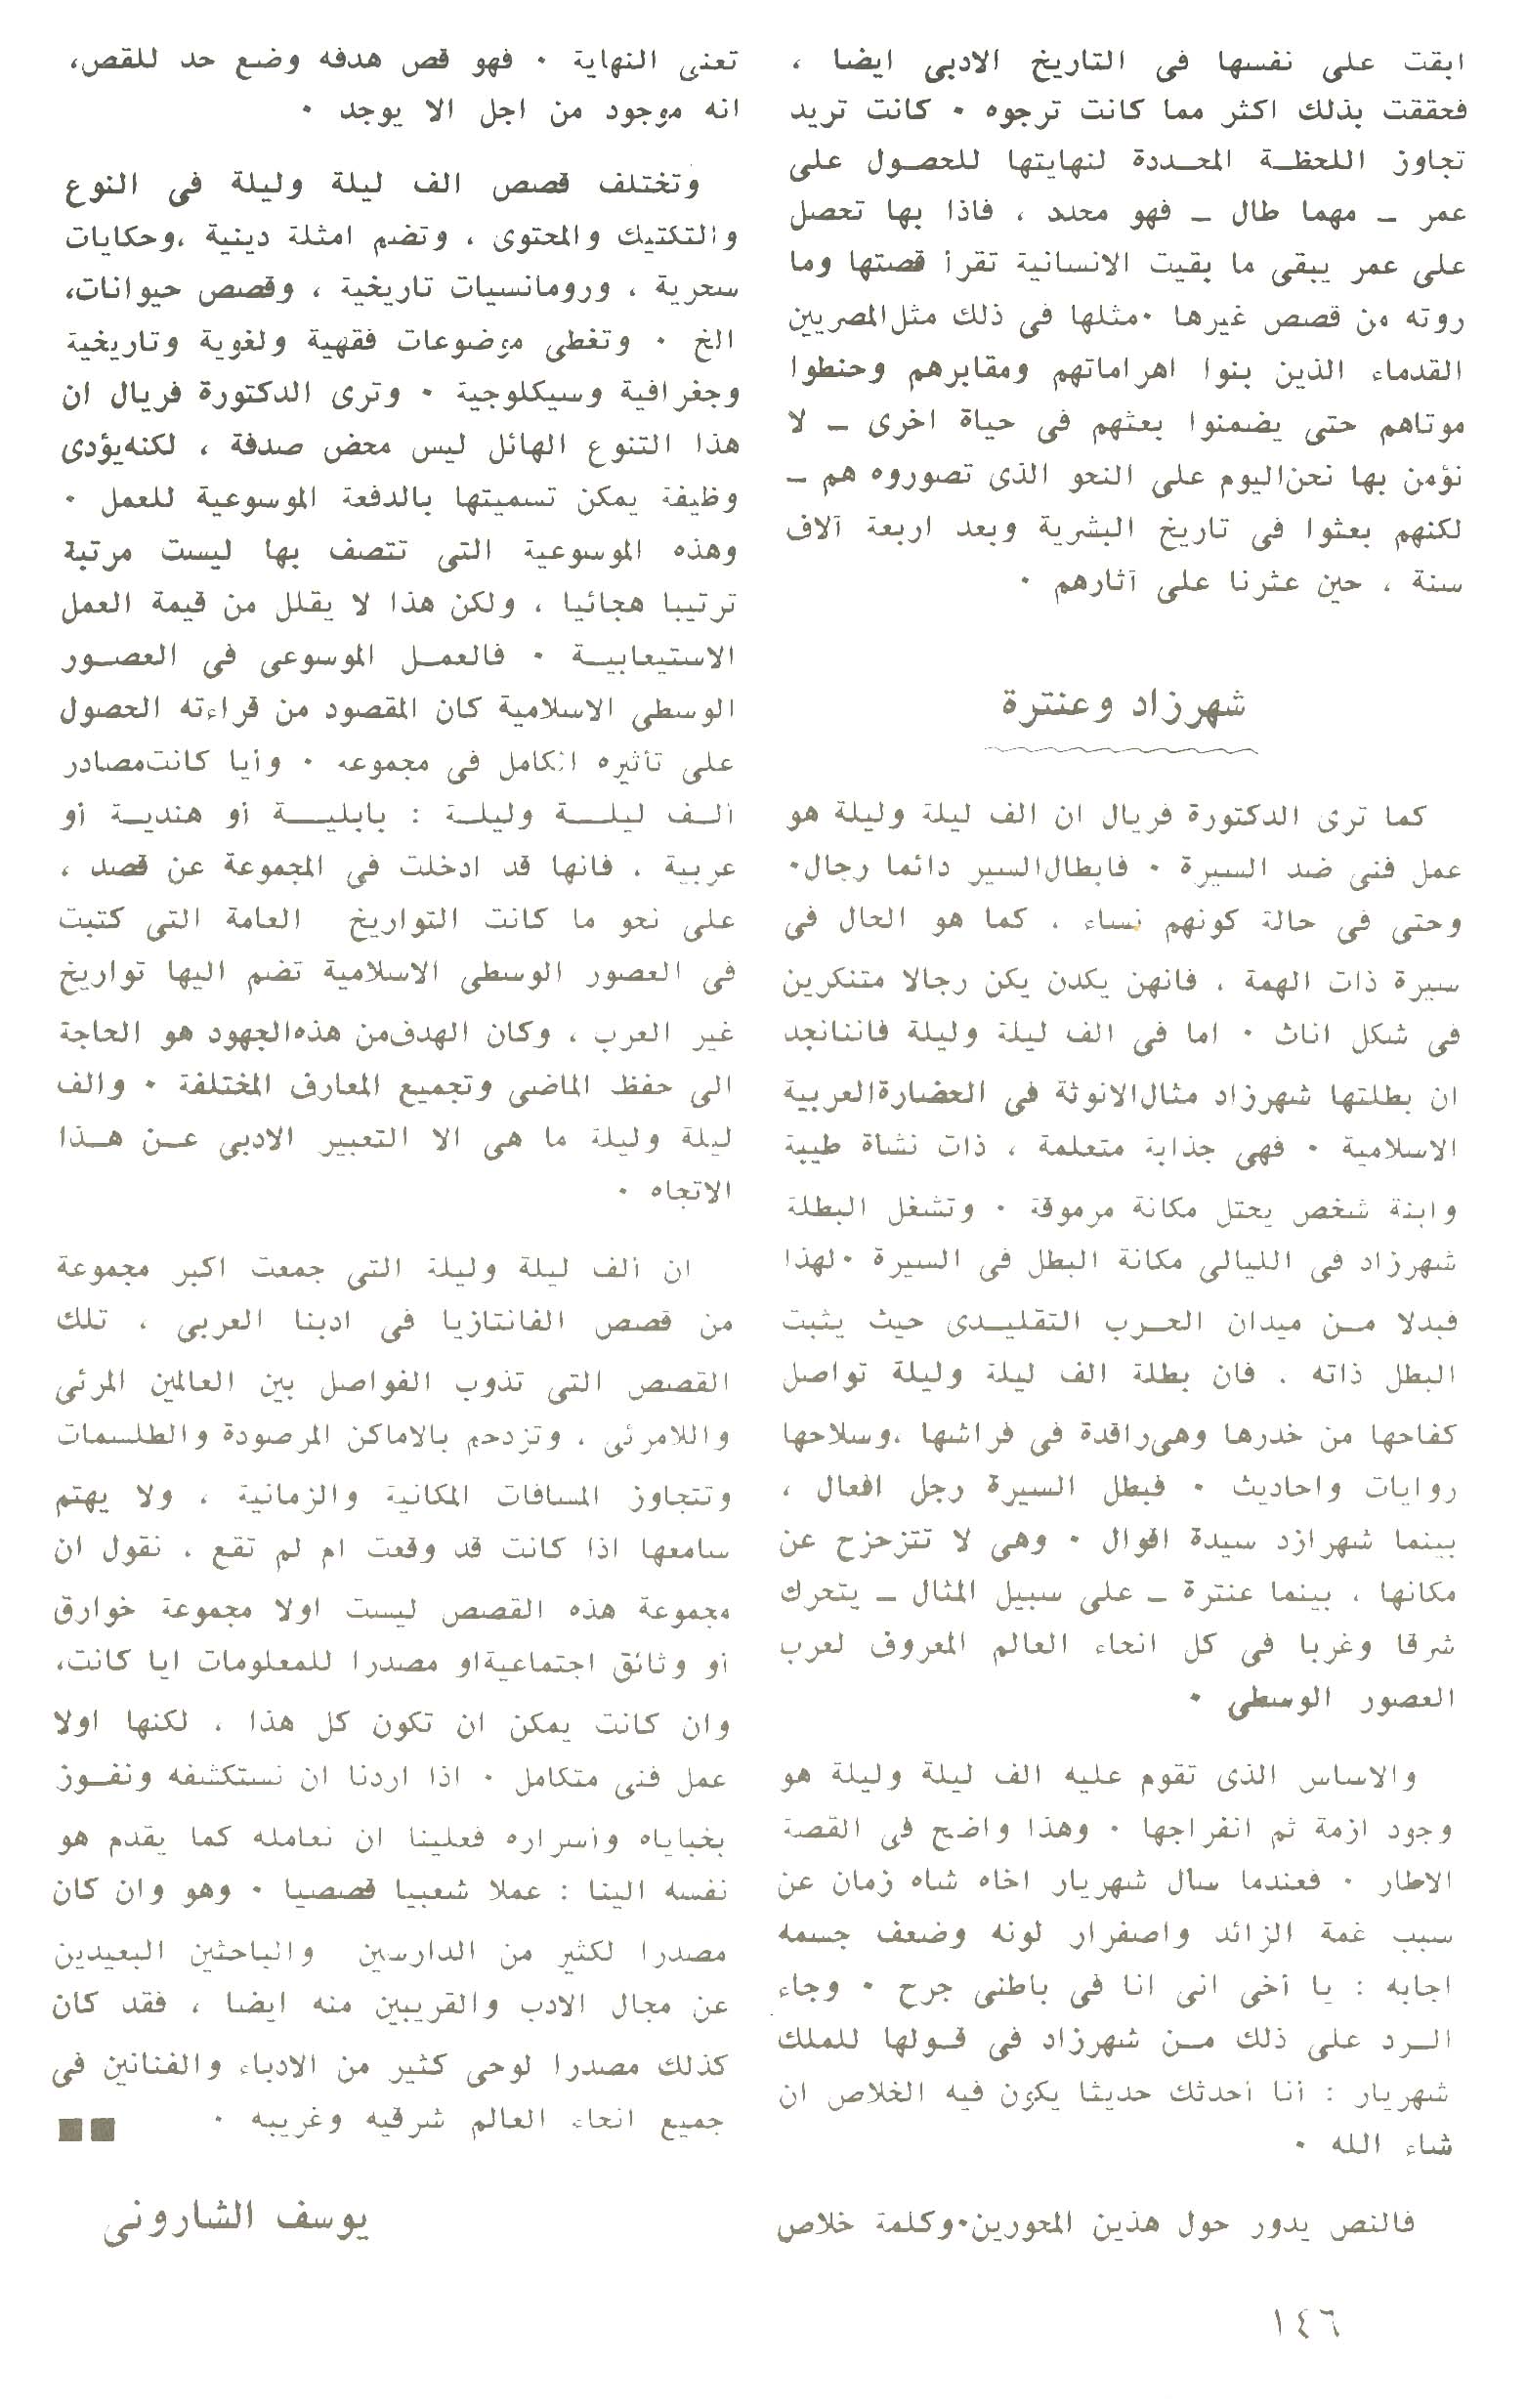 ابقت على نفسها فى التاريخ الادبى ايضا ،
فحققت بذلك اكثر مما كانت ترجوه ٠ كانت تريد
تجاوز اللحظـة المحـددة لنهايتها للحصـول على
عمر ـ مهما طال ـ فهو محدد ، فاذا بها تحصل
على عمر يبقى ما بقيت الانسانية تقرأ قصتها وما
روته من قصص غيرها ٠مثلها فى ذلك مثل المصريين
القدماء الذين بنوا اهراماتهم ومقابرهم وحنطوا
موتاهم حتى يضمنوا بعثهم فى حياة اخرى ـ لا
نؤمن بها نحن اليوم على النحو الذى تصوروه هم ـ
لكنهم بعثوا فى تاريخ البشرية وبعد اربعة آلاف
سنة ، حين عثرنا على آثارهم ٠
شهرزاد وعنترة
كما ترى الدكتورة فريال ان الف ليلة وليلة هو
عمل فنى ضد السيرة ٠ فابطال السير دائما رجال٠
وحتى فى حالة كونهم نساء ، كما هو الحال فى
سيرة ذات الهمة ، فانهن يكدن يكن رجالا متنكرين
فى شكل اناث ٠ اما فى الف ليلة وليلة فاننانجد
ان بطلتها شهرزاد مثال الانوثة فى الحضارة العربية
الاسلامية ٠ فهى جذابة متعلمة ، ذات نشاة طيبة
وابنة شخص يحتل مكانة مرموقة ٠ وتشغل البطلة
شهرزاد فى الليالى مكانة البطل فى السيرة ٠لهذا
فبدلا مـن ميدان الحـرب التقليـدى حيث يثبت
البطل ذاته ، فان بطلة الف ليلة وليلة تواصل
كفاحها من خدرها وهى راقدة فى فراشها ،وسلاحها
روايات واحاديث ٠ فبطل السيرة رجل افعال ،
بينما شهرازد سيدة اقوال ٠ وهى لا تتزحزح عن
مكانها ، بينما عنترة ـ على سبيل المثال ـ يتحرك
شرقا وغربا فى كل انحاء العالم المعروف لعرب
العصور الوسطى ٠
والاساس الذى تقوم عليه الف ليلة وليلة هو
وجود ازمة ثم انفراجها ٠ وهذا واضح فى القصة
الاطار ٠ فعندما سال شهريار اخاه شاه زمان عن
سبب غمة الزائد واصفرار لونه وضعف جسمه
اجابه : يا أخى انى انا فى باطنى جرح ٠ وجاء
الـرد على ذلك مـن شهرزاد فى قـولها للملك
شهريار : أنا أحدثك حديثا يكون فيه الخلاص ان
شاء الله ٠
فالنص يدور حول هذين المحورين٠وكلمة خلاص
تعنى النهاية ٠ فهو قص هدفه وضع حد للقص،
انه موجود من اجل الا يوجد ٠
وتختلف قصص الف ليلة وليلة فى النوع
والتكتيك والمحتوى ، وتضم امثلة دينية ،وحكايات
سحرية ، ورومانسيات تاريخية ، وقصص حيوانات،
الخ ٠ وتغطى موضوعات فقهية ولغوية وتاريخية
وجغرافية وسيكلوجية ٠ وترى الدكتورة فريال ان
هذا التنوع الهائل ليس محض صدفة ، لكنه يؤدى
وظيفة يمكن تسميتها بالدفعة الموسوعية للعمل ٠
وهذه الموسوعية التى تتصف بها ليست مرتبة
ترتيبا هجائيا ، ولكن هذا لا يقلل من قيمة العمل
الاستيعابيـة ٠ فالعمـل الموسوعى فى العصـور
الوسطى الاسلامية كان المقصود من قراءته الحصول
على تأثيره الكامل فى مجموعه ٠ وأيا كانت مصادر
ألـف ليلـــة وليلـة : بابليـــة أو هنديـة أو
عربية ، فانها قد ادخلت فى المجموعة عن قصد ،
على نحو ما كانت التواريخ العامة التى كتبت
فى العصور الوسطى الاسلامية تضم اليها تواريخ
غير العرب ، وكان الهدف من هذه الجهود هو الحاجة
الى حفظ الماضى وتجميع المعارف المختلفة ٠ والف
ليلة وليلة ما هى الا التعبير الادبى عـن هـذا
الاتجاه ٠
ان ألف ليلة وليلة التى جمعت اكبر مجموعة
من قصص الفانتازيا فى ادبنا العربى ، تلك
القصص التى تذوب الفواصل بين العالمين المرئى
واللامرئى ، وتزدحم بالاماكن المرصودة والطلسمات
وتتجاوز المسافات المكانية والزمانية ، ولا يهتم
سامعها اذا كانت قد وقعت ام لم تقع ، نقول ان
مجموعة هذه القصص ليست اولا مجموعة خوارق
أو وثائق اجتماعية او مصدرا للمعلومات ايا كانت،
وان كانت يمكن ان تكون كل هذا ، لكنها اولا
عمل فنى متكامل ٠ اذا اردنا ان نستكشفه ونفـوز
بخباياه وأسراره فعلينا ان نعامله كما يقدم هو
نفسه الينا : عملا شعبيا قصصيا ٠ وهو وان كان
مصدرا لكثير من الدارسين والباحثين البعيدين
عن مجال الادب والقريبين منه ايضا ، فقد كان
كذلك مصدرا لوحى كثير من الادباء والفنانين فى
جميع انحاء العالم شرقيه وغريبه ٠
يوسف الشارونى
١٤٦